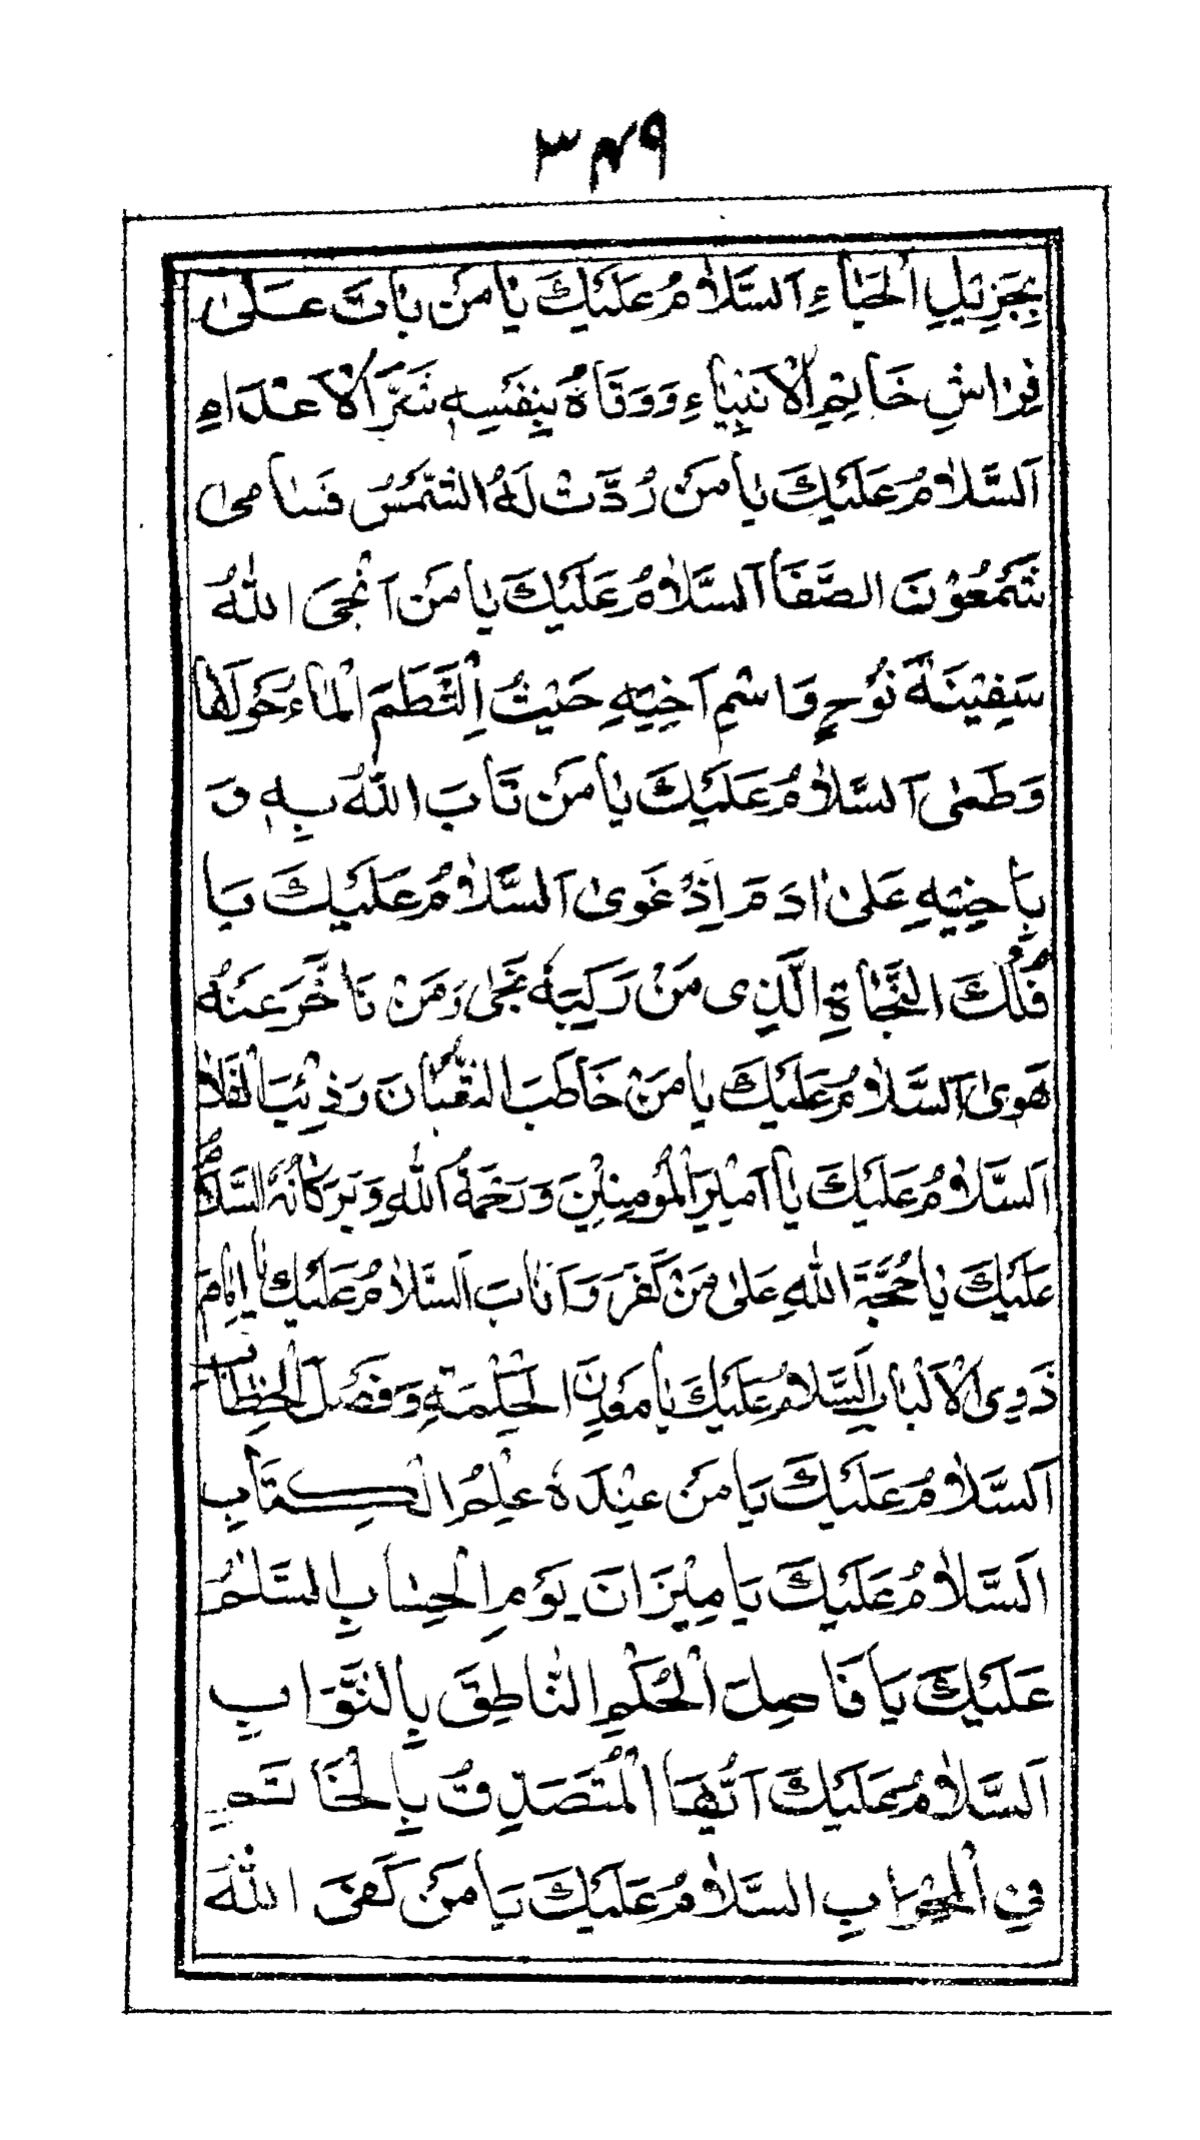 ۳۴۹
بِجَزِيْلِ الْحَبَاءِ اَلسَّلَامُ عَلَيْكَ يَا مَنْ بَاتَ عَلٰى
فِرَاشِ خَاتِمِ الْاَنْبِيَاءِ وَوَقَاهُ بِنَفْسِهٖ شَرَّ الْاَعْدَاءِ
اَلسَّلَامُ عَلَيْكَ يَا مَنْ رُدَّتْ لَهُ الشَّمْسُ فَسَامٰى
شَمْعُوْنَ الصَّفَا اَلسَّلَامُ عَلَيْكَ يَا مَنْ اَنْجَى اللّٰهُ
سَفِيْنَةَ نُوْحٍ وَاسْمِ اَخِيْهِ حَيْثُ اِلْتَطَمَ الْمَاءُ حَوْلَهَا
وَطَمٰى اَلسَّلَامُ عَلَيْكَ يَا مَنْ تَابَ اللّٰهُ بِهٖ وَ
بِاَخِيْهِ عَلٰى اٰدَمَ اِذْ غَوٰى اَلسَّلَامُ عَلَيْكَ يَا
فُلْكَ النَّجَاةِ الَّذِى مَنْ رَكِبَهُ نَجٰى وَمَنْ تَاَخَّرَ عَنْهُ
هَوٰى اَلسَّلَامُ عَلَيْكَ يَا مَنْ خَاطَبَ الثُّعْبَانَ وَذِئْبَ الْفَلَا
اَلسَّلَامُ عَلَيْكَ يَا اَمِيْرَ الْمُؤْمِنِيْنَ وَرَحْمَةُ اللّٰهِ وَبَرَكَاتُهُ اَلسَّلَامُ
عَلَيْكَ يَا حُجَّةَ اللّٰهِ عَلٰى مَنْ كَفَرَ وَاَنَابَ اَلسَّلَامُ عَلَيْكَ يَا اِمَامَ
ذَوِى الْاَلْبَابِ اَلسَّلَامُ عَلَيْكَ يَا مَعْدِنَ الْحِكْمَةِ وَفَصْلَ الْخِطَابِ
اَلسَّلَامُ عَلَيْكَ يَا مَنْ عِنْدَهُ عِلْمُ الْكِتَابِ
اَلسَّلَامُ عَلَيْكَ يَا مِيْزَانَ يَوْمِ الْحِسَابِ السَّلَامُ
عَلَيْكَ يَا فَاصِلَ الْحُكْمِ النَّاطِقَ بِالصَّوَابِ
اَلسَّلَامُ عَلَيْكَ اَيُّهَا الْمُتَصَدِّقُ بِالْخَاتَمِ
فِى الْمِحْرَابِ السَّلَامُ عَلَيْكَ يَا مَنْ كَفَى اللّٰهُ